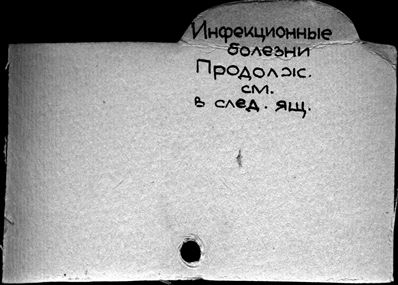 Инфекционные
болезни
Продолж.
см.
в след. ящ.